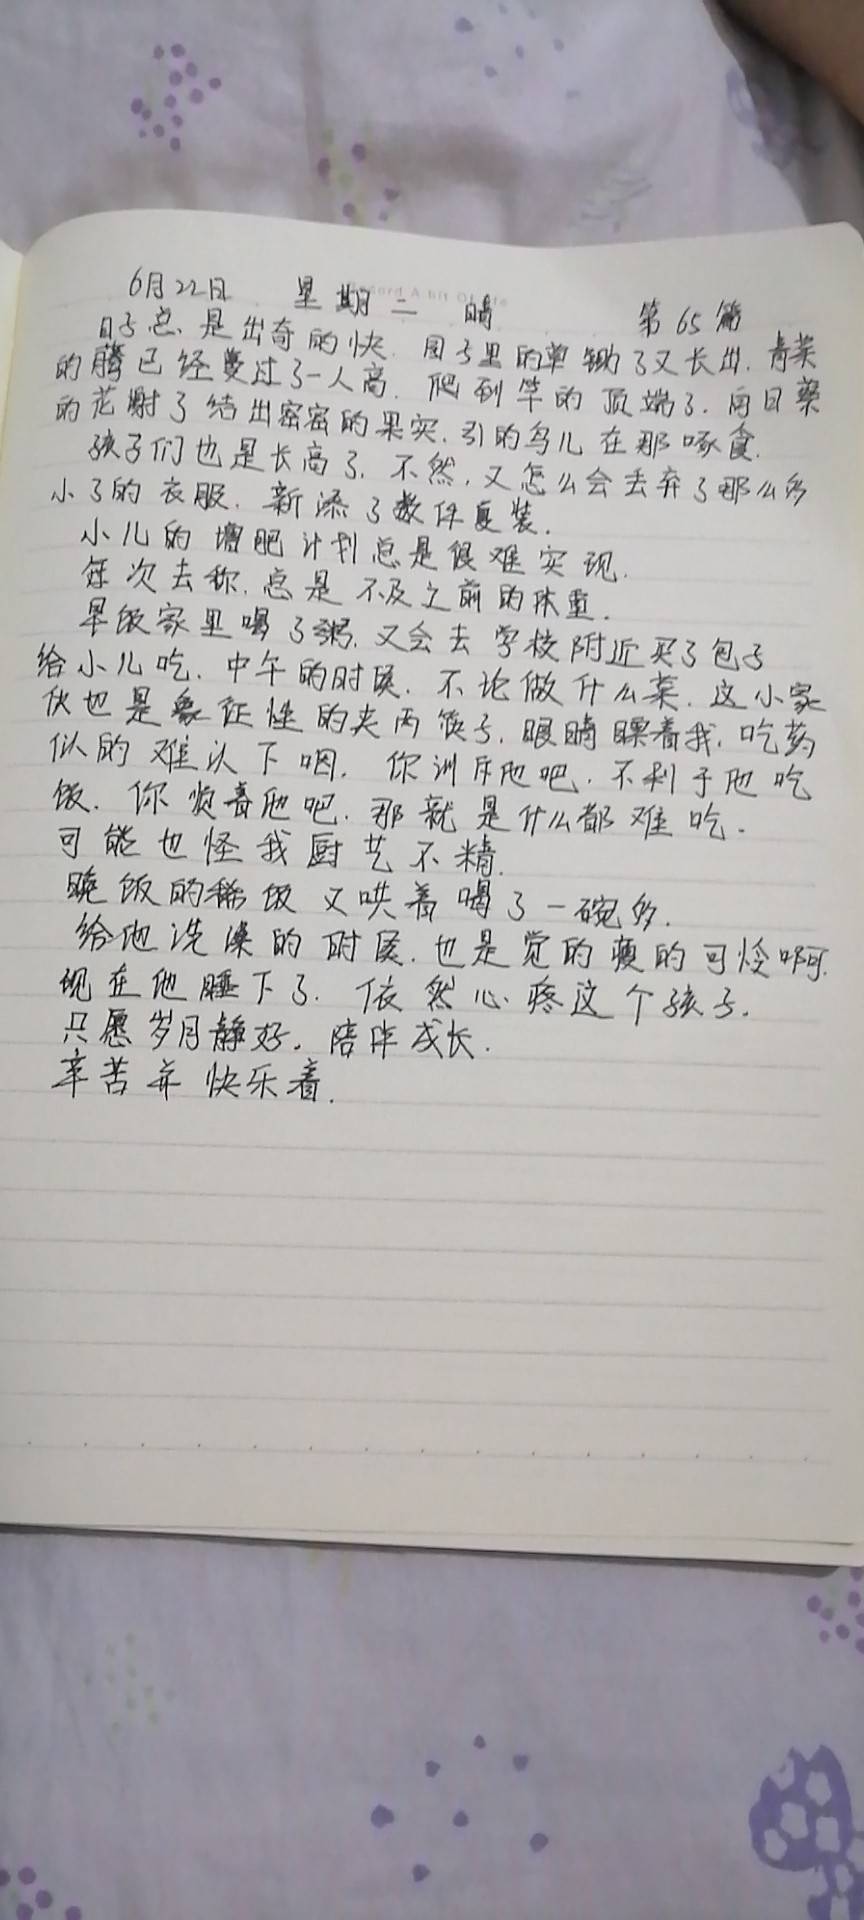 6月22日 星期二 晴 第65篇
日子总是出奇的快.园子里的草锄了又长出.青菜
的腾已经蔓过了一人高.爬到竿的顶端了.向日葵
的花谢了结出密密的果实.引的鸟儿在那啄食.
孩子们也是长高了.不然,又怎么会丢弃了那么多
小了的衣服.新添了数件夏装.
小儿的增肥计划总是很难实现.
每次去称.总是不及之前的体重.
早饭家里喝了粥.又会去学校附近买了包子
给小儿吃.中午的时侯.不论做什么菜.这小家
伙也是象征性的夹两筷子.眼睛瞟着我.吃药
似的难以下咽.你训斥他吧.不利于他吃
饭.你惯着他吧.那就是什么都难吃.
可能也怪我厨艺不精.
晚饭的稀饭又哄着喝了一碗多.
给他洗澡的时侯.也是觉的瘦的可怜啊.
现在他睡下了.依然心疼这个孩子.
只愿岁月静好.陪伴成长.
辛苦并快乐着.